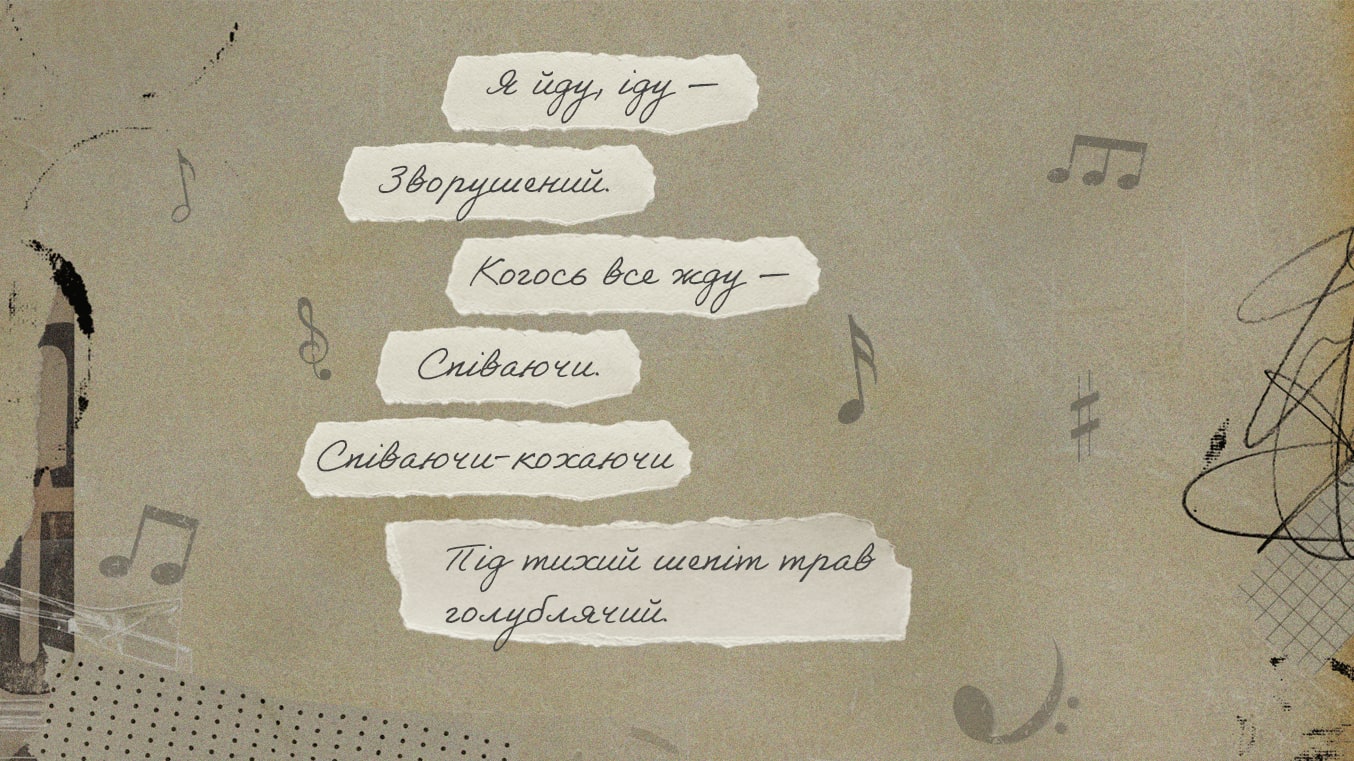 Я йду, іду –
Зворушений.
Когось все жду –
Співаючи.
Співаючи-кохаючи
Під тихий шепіт трав
голублячий.